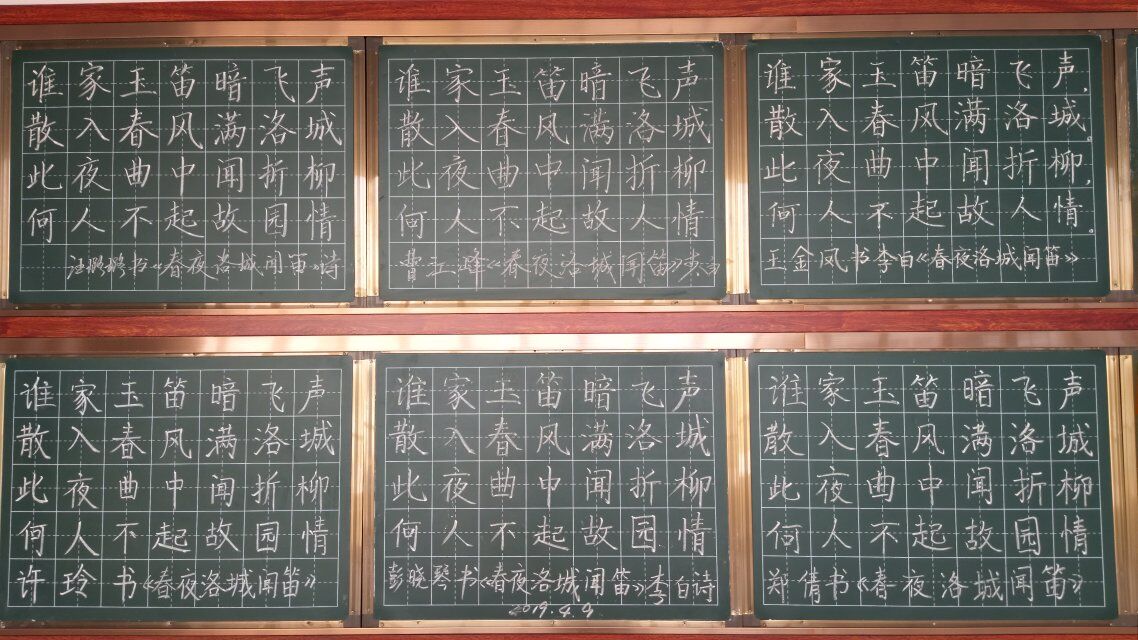 谁家玉笛暗飞声
散入春风满洛城
此夜曲中闻折柳
何人不起故园情
汪璐璐书《春夜洛城闻笛》诗
谁家玉笛暗飞声
散入春风满洛城
此夜曲中闻折柳
何人不起故人情
曹江峰《春夜洛城闻笛》李白
谁家玉笛暗飞声,
散入春风满洛城。
此夜曲中闻折柳,
何人不起故人情。
王金凤书李白《春夜洛城闻笛》
谁家玉笛暗飞声
散入春风满洛城
此夜曲中闻折柳
何人不起故园情
许玲书《春夜洛城闻笛》
谁家玉笛暗飞声
散入春风满洛城
此夜曲中闻折柳
何人不起故园情
彭晓琴书《春夜洛城闻笛》李白诗
2019.4.9
谁家玉笛暗飞声
散入春风满洛城
此夜曲中闻折柳
何人不起故园情
郑倩书《春夜洛城闻笛》